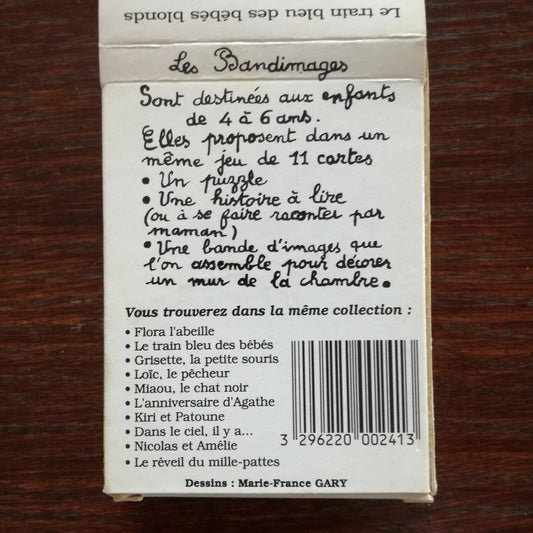 Le train bleu des bébés blonds
Les Bandimages
Sont destinées aux enfants
de 4 à 6 ans.
Elles proposent dans un
même jeu de 11 cartes
• Un puzzle
• Une histoire à lire
(ou à se faire raconter par
maman)
• Une bande d'images que
l'on assemble pour décorer
un mur de la chambre.
Vous trouverez dans la même collection :
• Flora l'abeille
• Le train bleu des bébés
• Grisette, la petite souris
• Loïc, le pêcheur
• Miaou, le chat noir
• L'anniversaire d'Agathe
• Kiri et Patoune
• Dans le ciel, il y a...
• Nicolas et Amélie
• Le réveil du mille-pattes
3 296220 002413
Dessins : Marie-France GARY